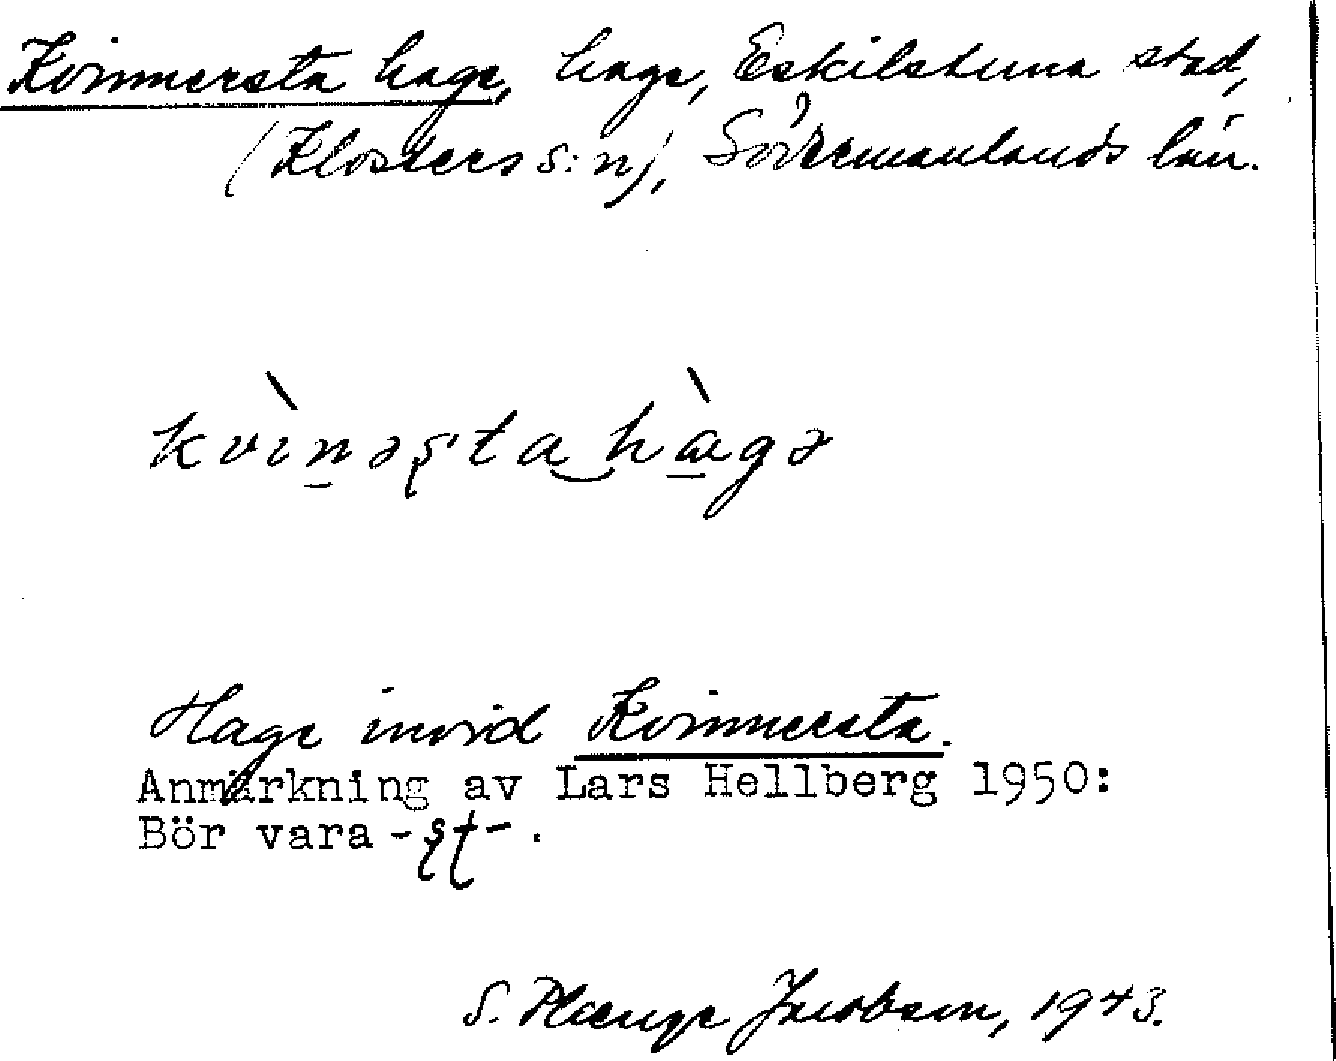 Kvinnersta hage, hage, Eskilstuna stad,
(Klosters s:n), Södermanlands län.
kvìn̲əʂta‿hɑ̲̀gə
Hage invid Kvinnersta.
Anmärkning av Lars Hellberg 1950:
Bör vara -ʂʈ- .
S. Plænge Jacobson, 1943.